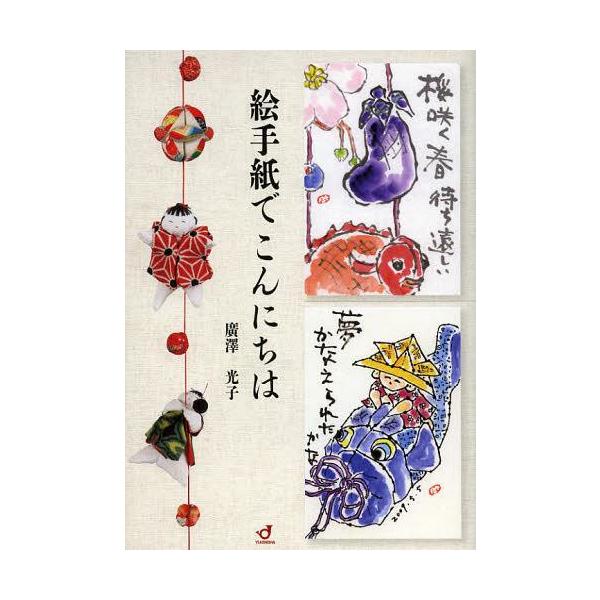 絵手紙でこんにちは
廣澤 光子
桜咲く春
待ち遠しい
夢
かなえられたかな
2009.5.5
YUUNISHA